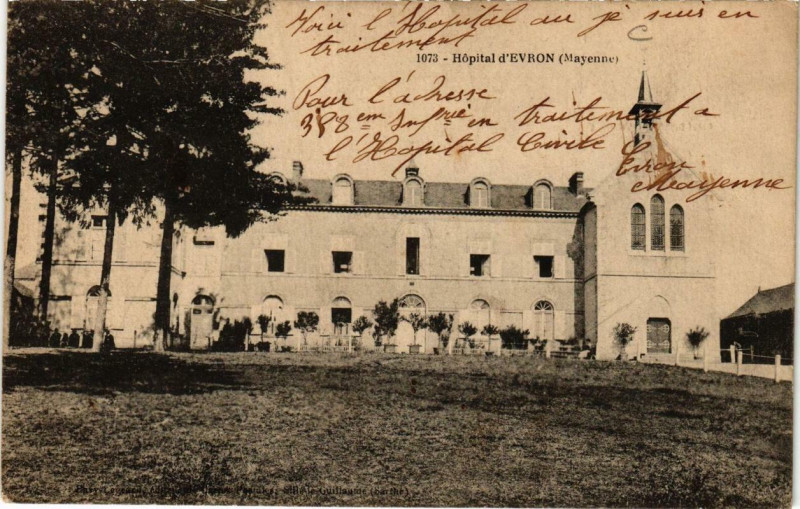 Voici l'Hopital au je suis en
traitement
1073 - Hôpital d'EVRON (Mayenne)
Pour l'adresse
em en traitement a
l'Hopital Civile Evron
Mayenne
Guillaume (Sarthe)